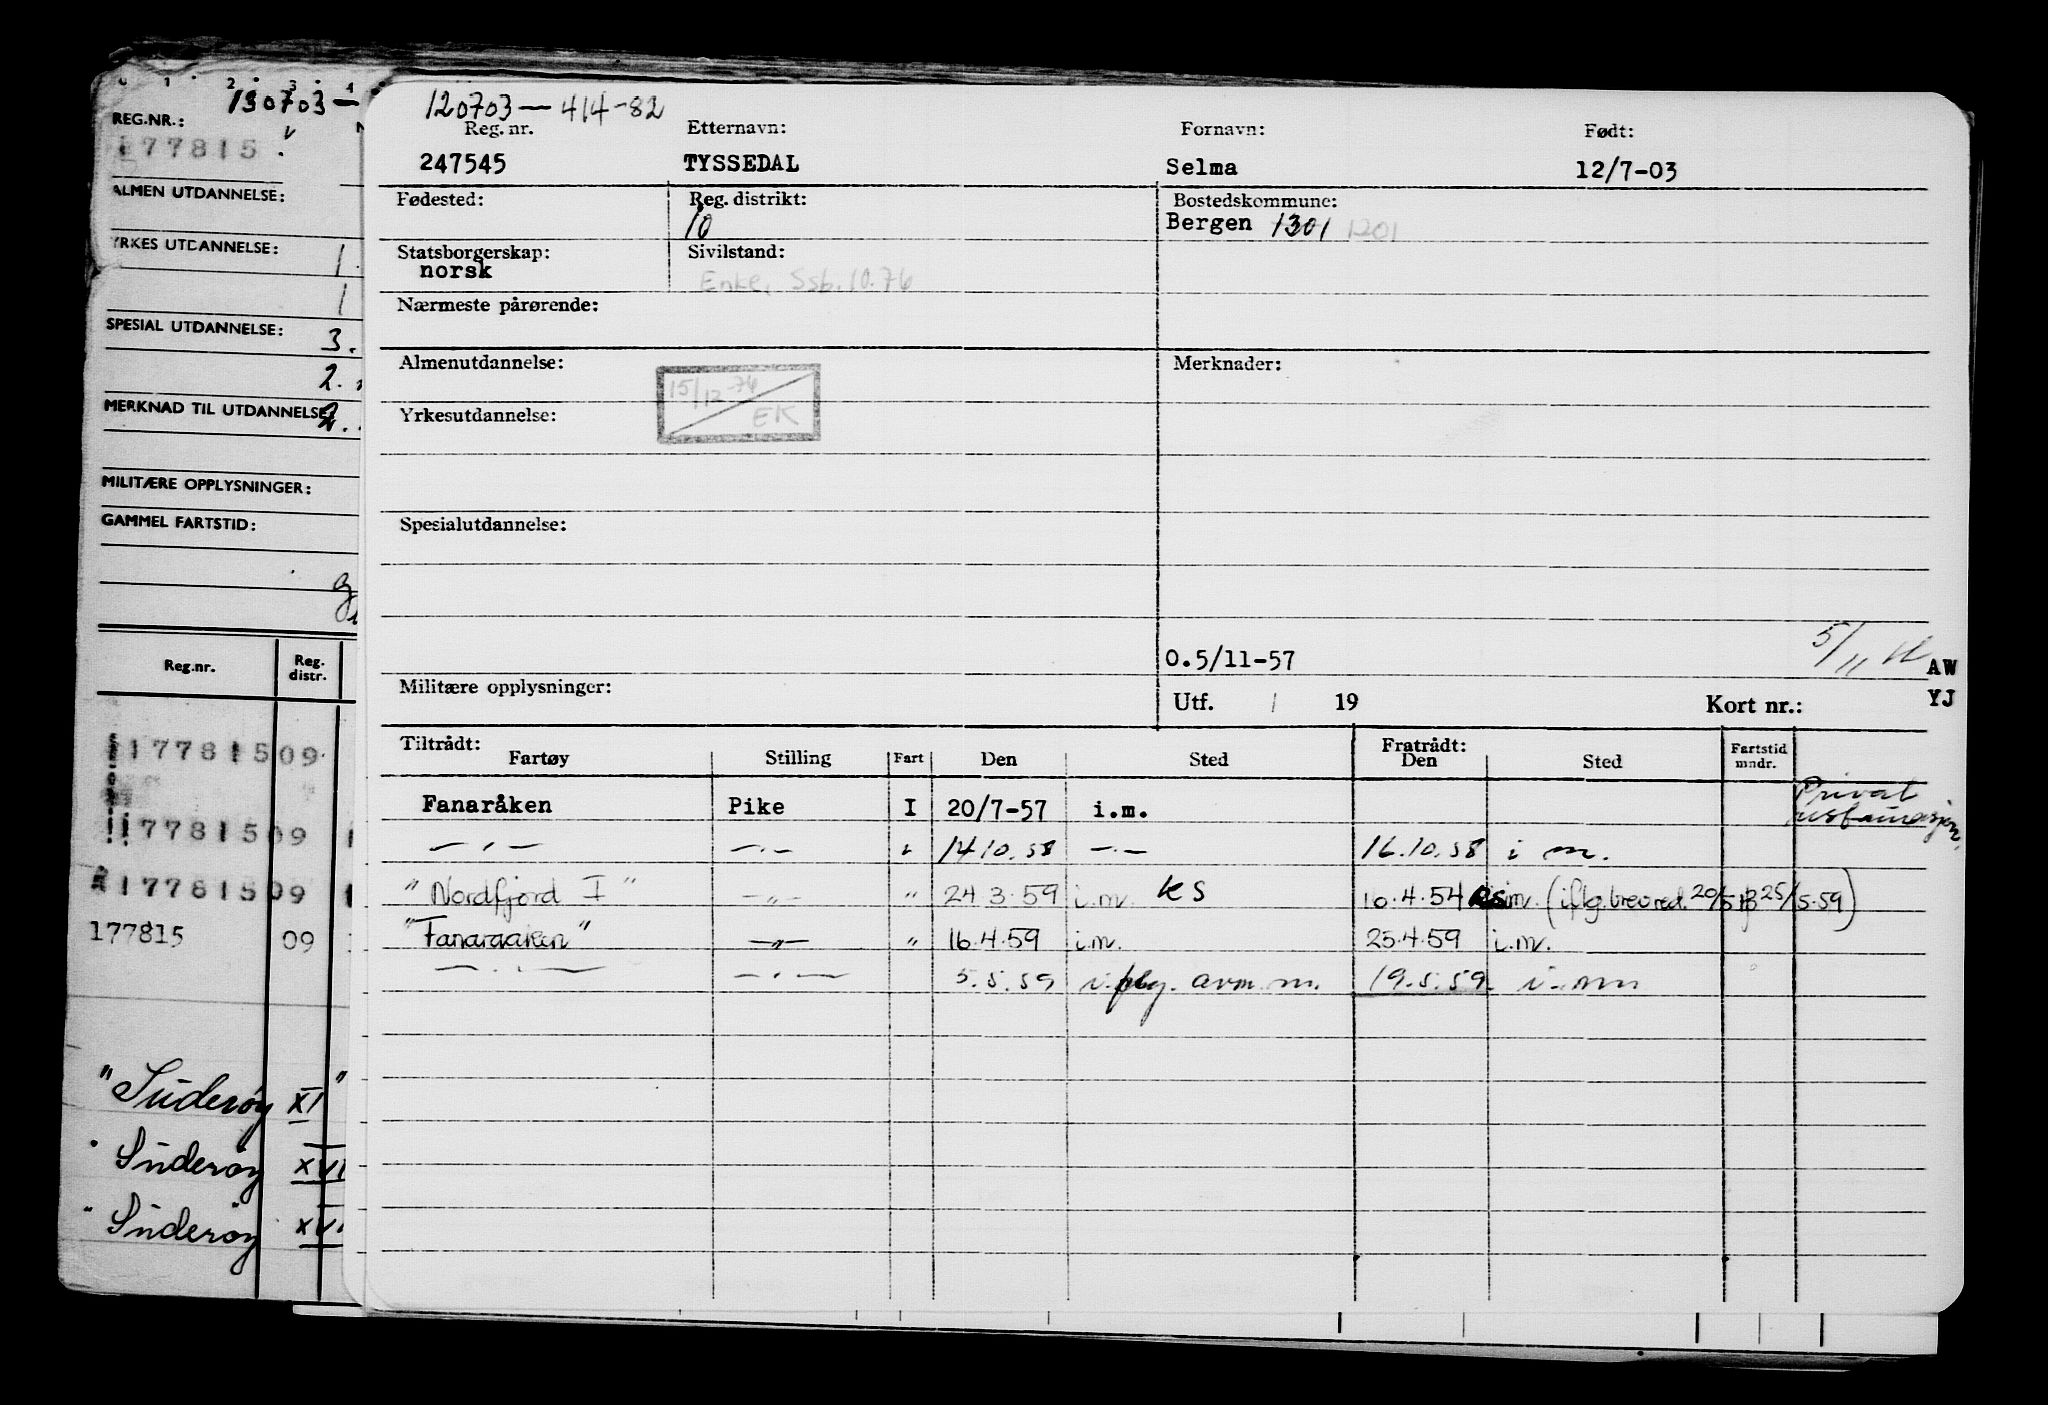 0 1 2 3 4
130703—
REG.NR.:
177815
ALMEN UTDANNELSE:
YRKES UTDANNELSE:
1.
1
SPESIAL UTDANNELSE:
3.
2.
MERKNAD TIL UTDANNELSE
2.
MILITÆRE OPPLYSNINGER:
GAMMEL FARTSTID:
Reg.nr. Reg. distr.
177815 09
177815 09
177815 09
177815 09
"Suderøy XI"
" Suderøy XVI
" Suderøy XVI
120703—414-82
Reg. nr. Etternavn: Fornavn: Født:
247545 TYSSEDAL Selma 12/7-03
Fødested: Reg. distrikt: Bostedskommune:
10 Bergen 1301 1201
Statsborgerskap: Sivilstand:
norsk Enke, Ssb.10.76
Nærmeste pårørende:
Almenutdannelse: Merknader:
15/12-76
EK
Yrkesutdannelse:
Spesialutdannelse:
0.5/11-57 5/11 AW
Militære opplysninger: Utf. / 19 Kort nr.: YJ
Tiltrådt: Fratrådt:
Fartøy Stilling Fart Den Sted Den Sted Fartstid mndr.
Fanaråken Pike I 20/7-57 i.m. Privat
— " — — " — " 14.10.58 — " — 16.10.58 i m.
"Nordfjord I" — " — " 24.3.59 i.m. KS 16.4.54 i.m. (iflg. brev red. 20/5 25/5.59)
"Fanaraaken" — " — " 16.4.59 i.m. 25.4.59 i.m.
— " — — " — 5.5.59 i. flg. avm. m. 19.5.59 i. mm